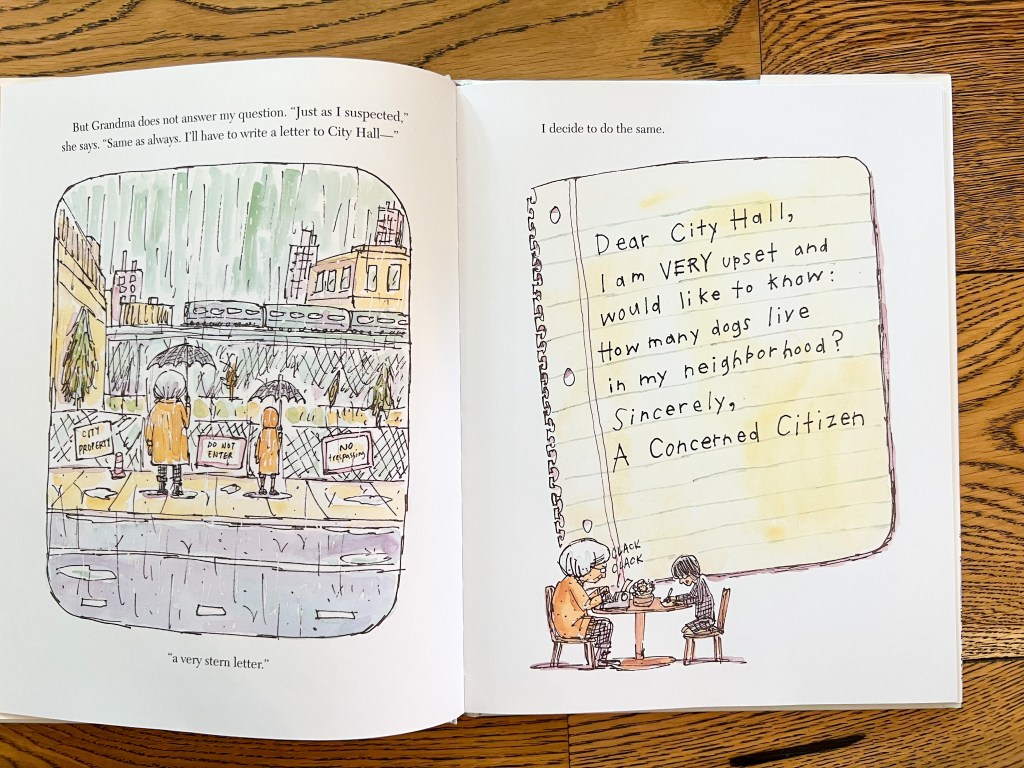 But Grandma does not answer my question. “Just as I suspected,”
she says. “Same as always. I’ll have to write a letter to City Hall—”
CITY
PROPERTY
DO NOT
ENTER
NO
trespassing
“a very stern letter.”
I decide to do the same.
Dear City Hall,
I am VERY upset and
would like to know:
How many dogs live
in my neighborhood?
Sincerely,
A Concerned Citizen
CLACK
CLACK